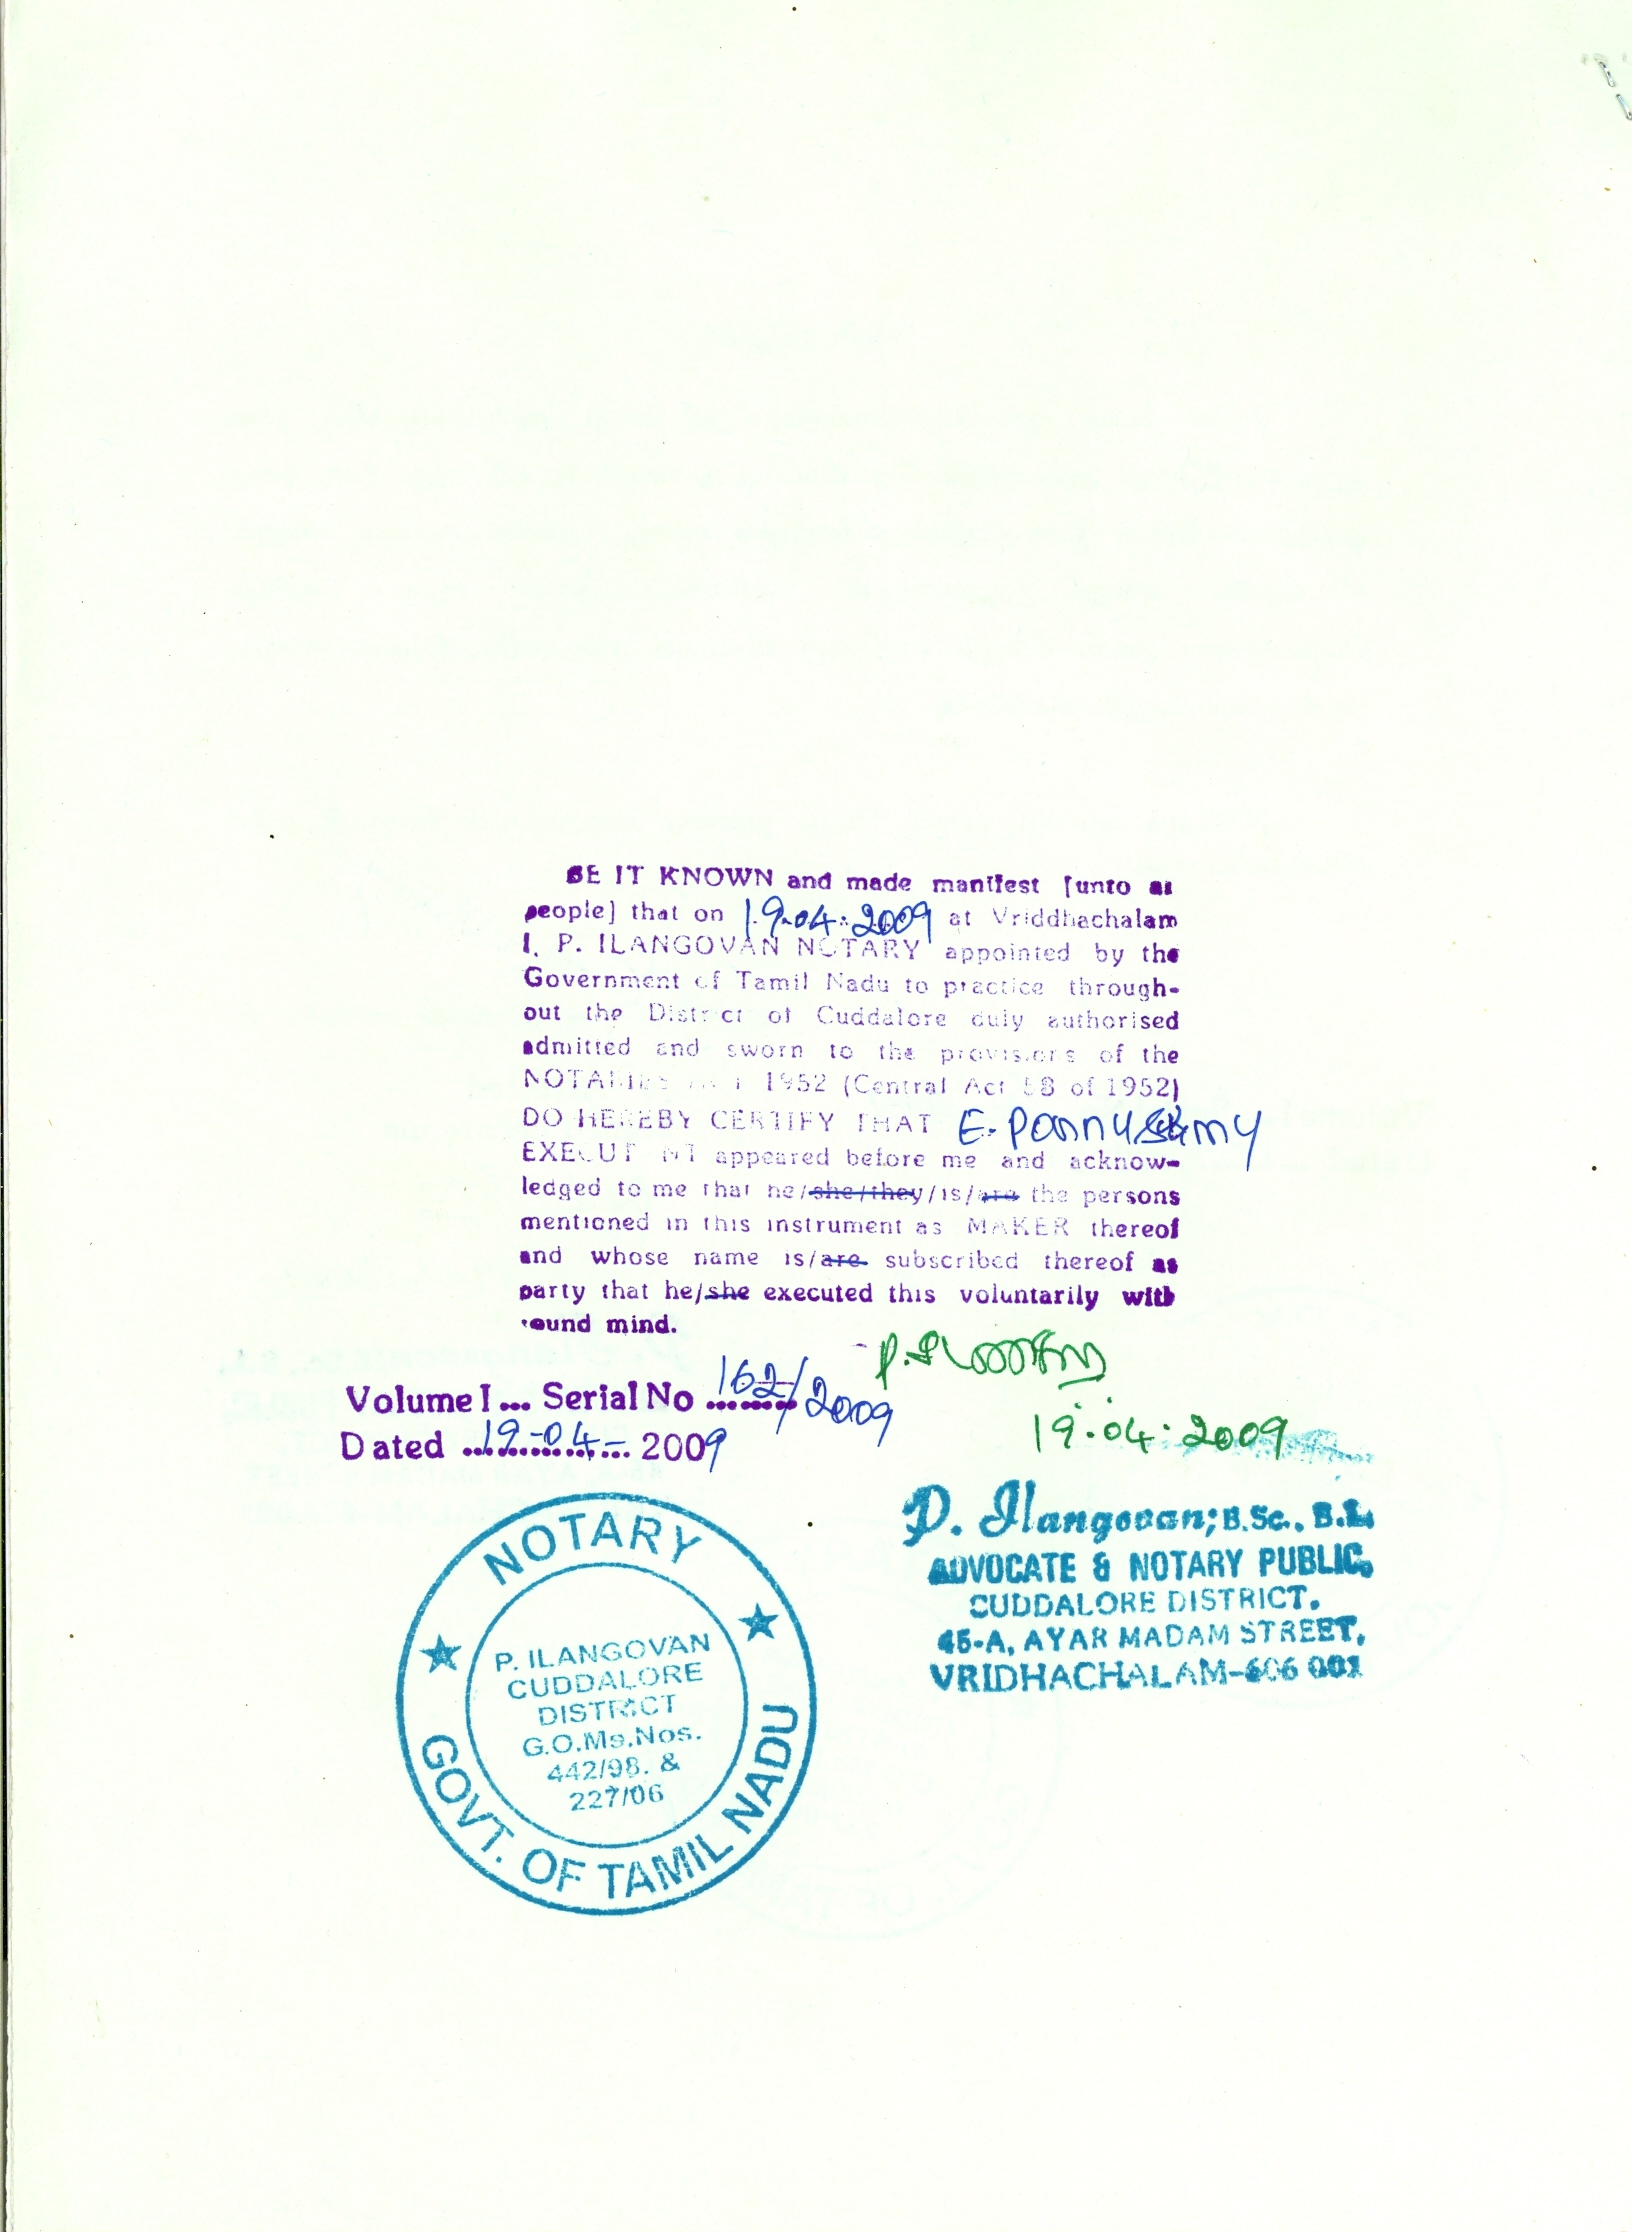 BE IT KNOWN and made manifest [unto as
people] that on 19-04-2009 at Vriddhachalam
I, P. ILANGOVAN NOTARY appointed by the
Government of Tamil Nadu to practice through-
out the District of Cuddalore duly authorised
admitted and sworn to the provisions of the
NOTARIES ACT 1952 (Central Act 58 of 1952)
DO HEREBY CERTIFY THAT E. Ponnusamy
EXECUTANT appeared before me and acknow-
ledged to me that he/she/they/is/are the persons
mentioned in this instrument as MAKER thereof
and whose name is/are subscribed thereof as
party that he/she executed this voluntarily with
sound mind.
Volume I... Serial No 162/2009
Dated 19-04- 2009
19.04.2009
NOTARY
P. ILANGOVAN
CUDDALORE
DISTRICT
G.O.Ms.Nos.
442/98. &
227/06
GOVT. OF TAMIL NADU
P. Ilangovan; B.Sc., B.L.
ADVOCATE & NOTARY PUBLIC,
CUDDALORE DISTRICT.
45-A, AYAR MADAM STREET,
VRIDHACHALAM-606 001